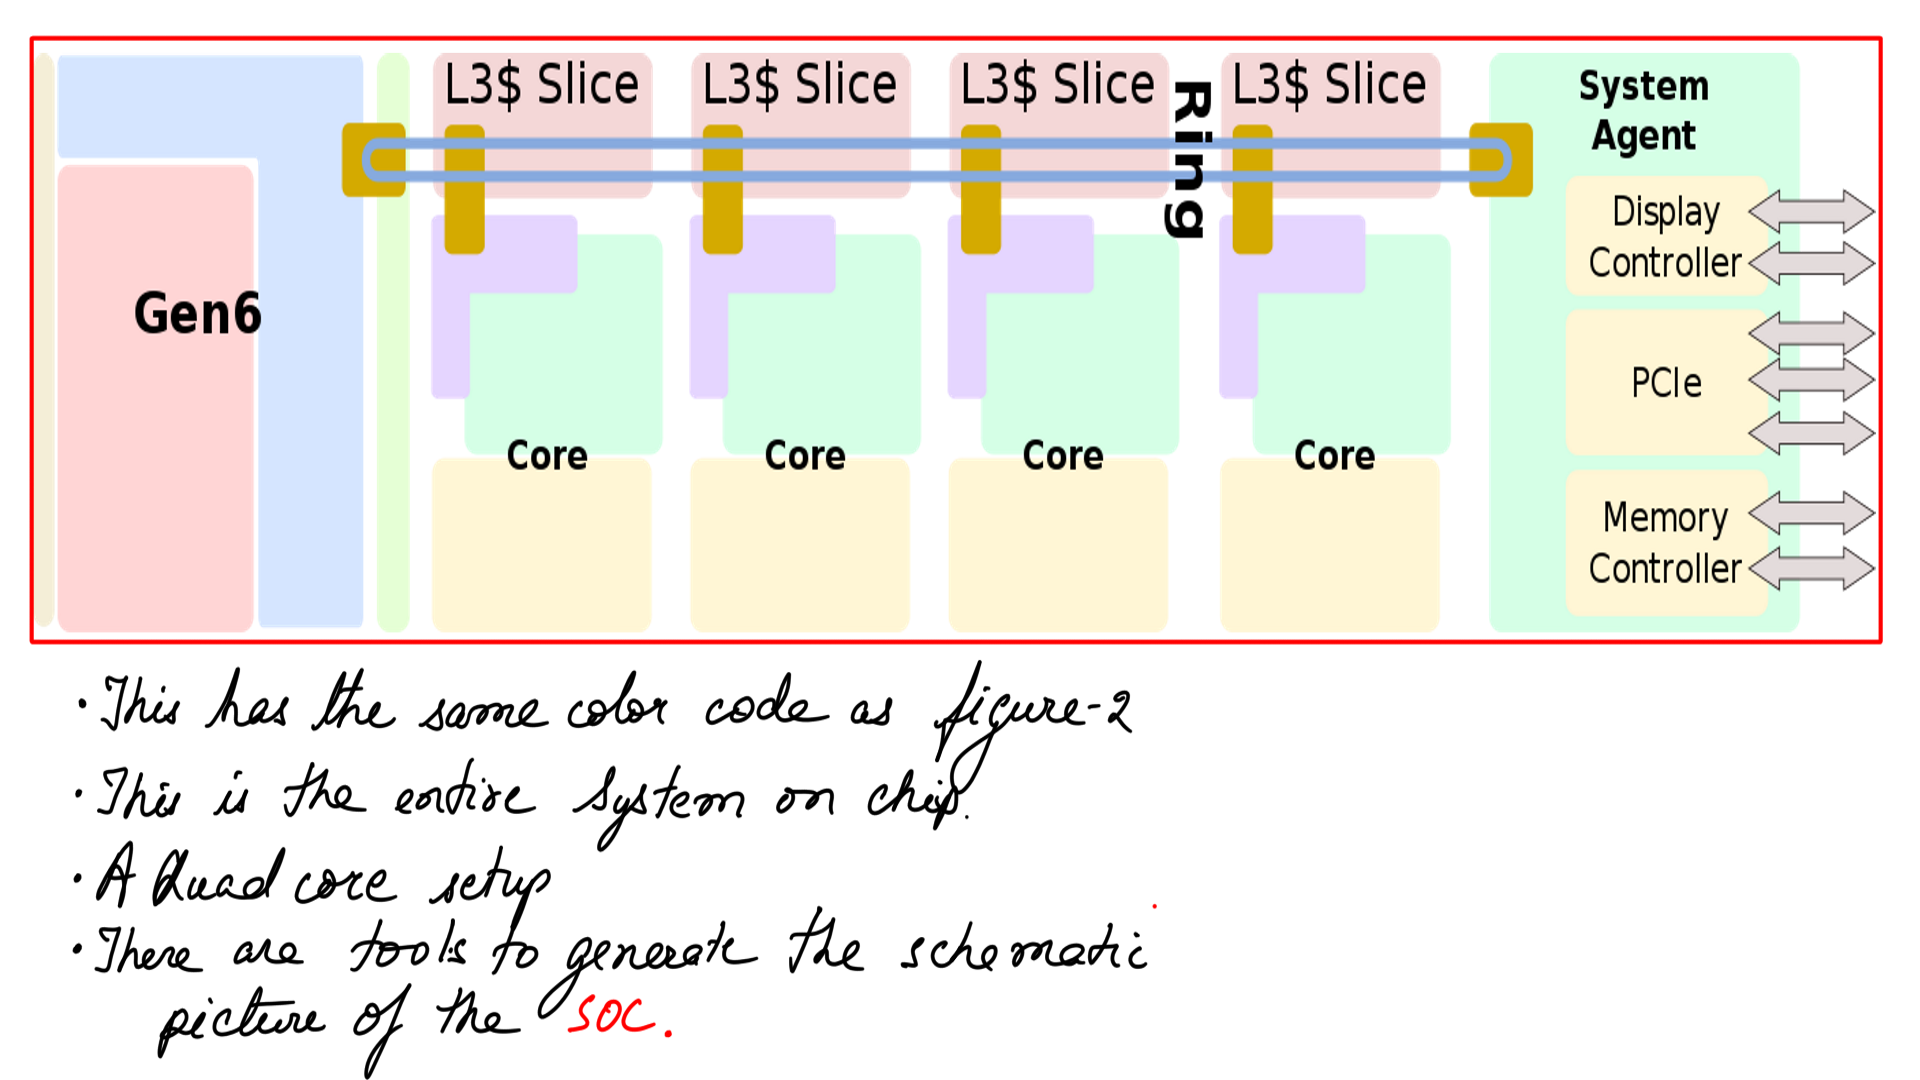 L3$ Slice L3$ Slice L3$ Slice L3$ Slice
Ring
System
Agent
Display
Controller
Gen6
PCIe
Core Core Core Core
Memory
Controller
· This has the same color code as figure-2
· This is the entire system on chip.
· A Quad core setup
· There are tools to generate the schematic
picture of the SOC.